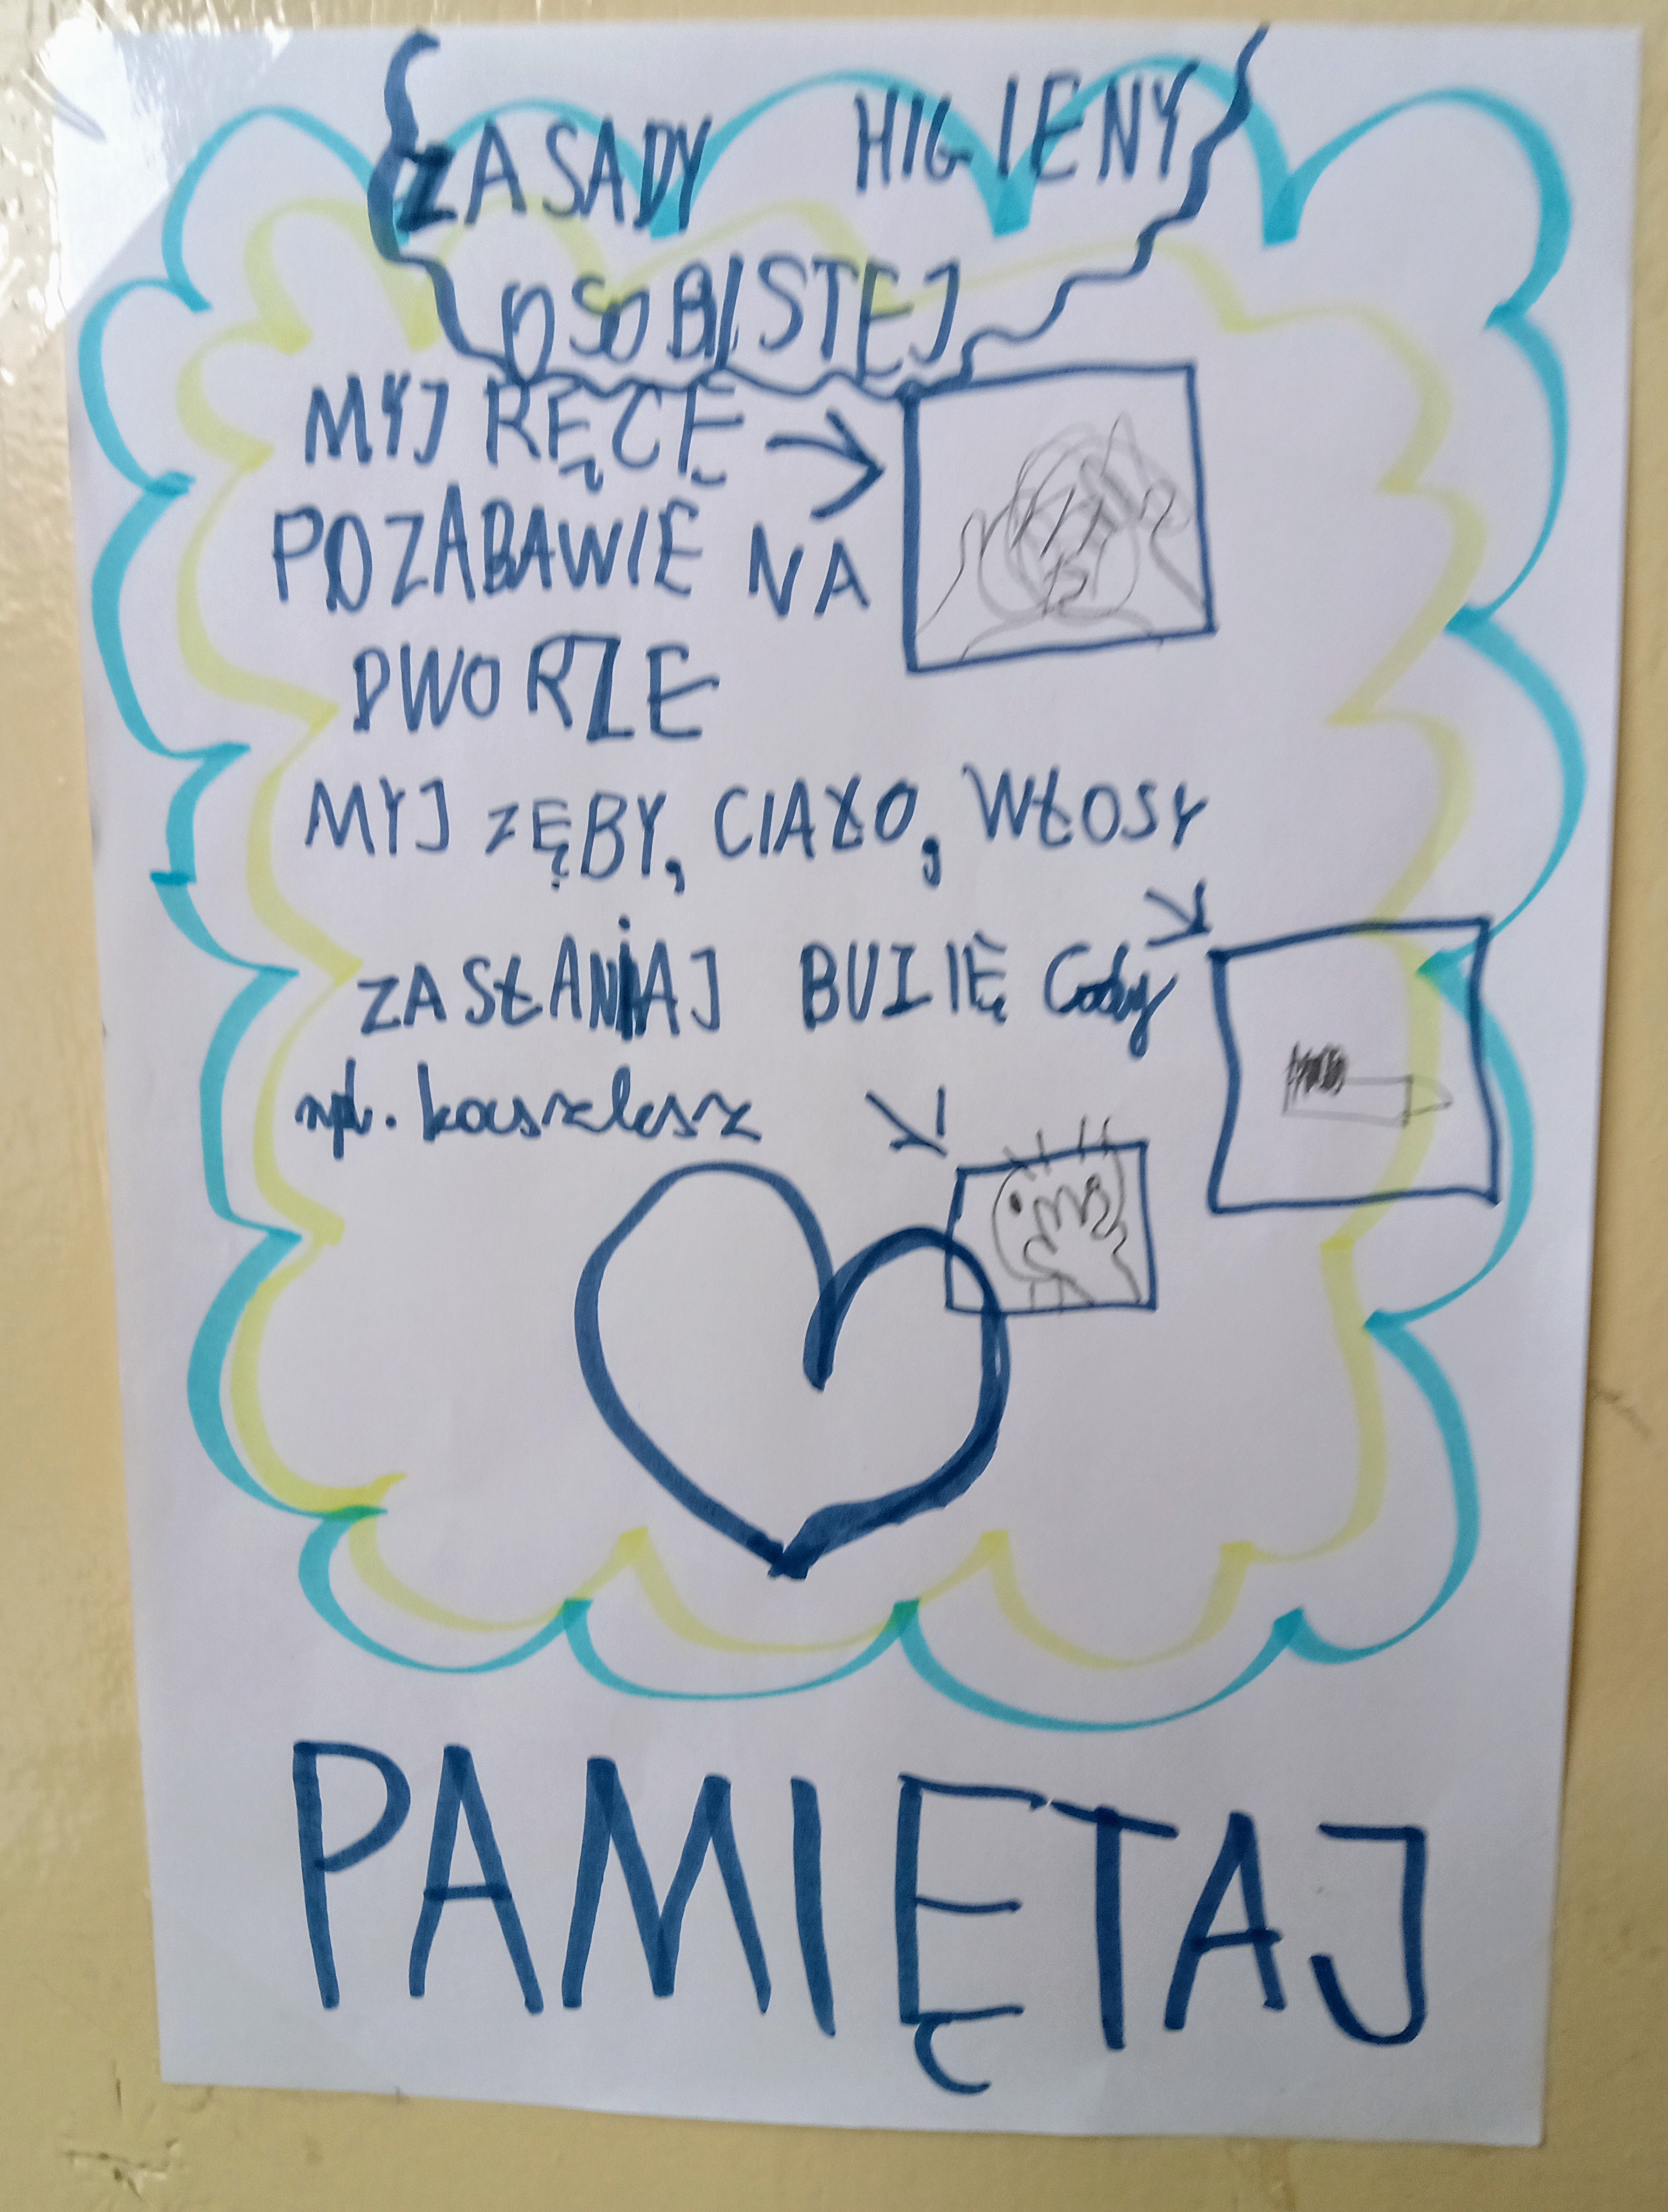 ZASADY HIGIENY
OSOBISTEJ
MYJ RĘCĘ
POZABAWIE NA
DWORZE
MYJ ZĘBY, CIAŁO, WŁOSY
ZASŁANIAJ BUZIĘ Gdy
np. kaszlesz
PAMIĘTAJ